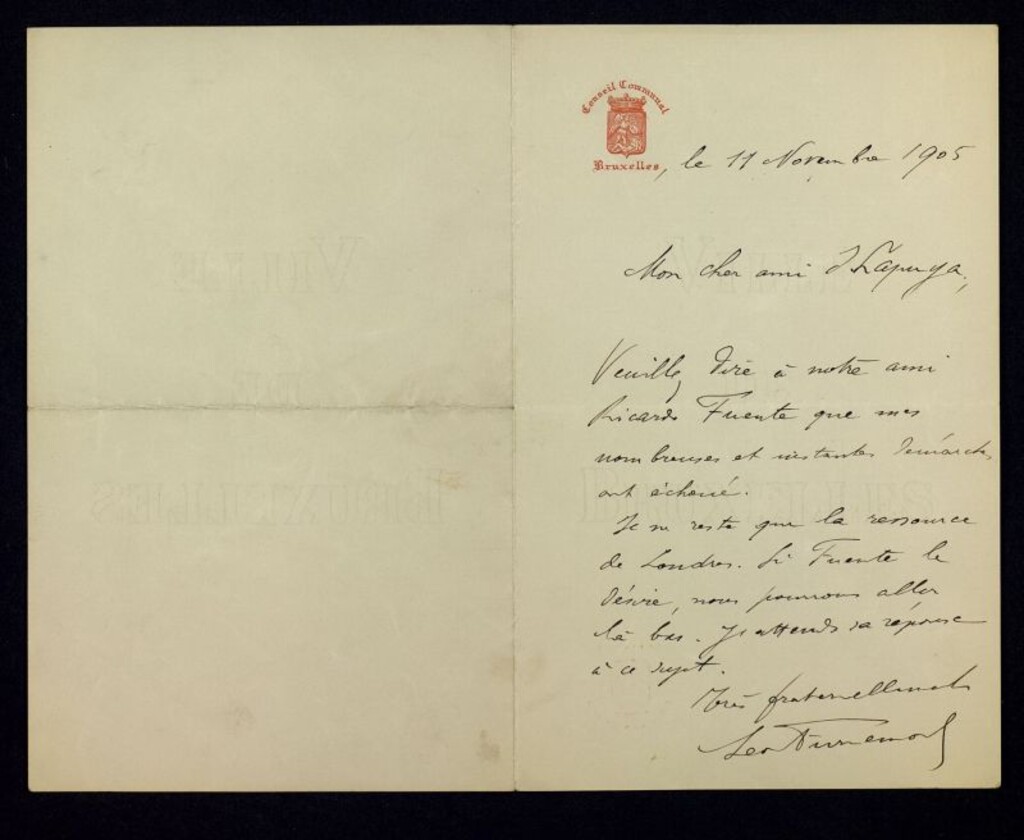 Conseil Communal
Bruxelles
, le 11 Novembre 1905
Mon cher ami
Veuillez dire à notre ami
Ricardo Fuente que mes
nombreuses et instantes démarches
ont échoué.
Je ne reste que la ressource
de Londres. Si Fuente le
désire, nous pourrons aller
là bas. J'attends sa réponse
à ce sujet.
Très fraternellement
Leo Furnemont
VILLE
DE
BRUXELLES